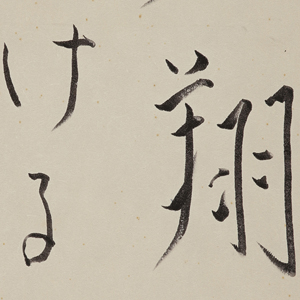 翔
ける